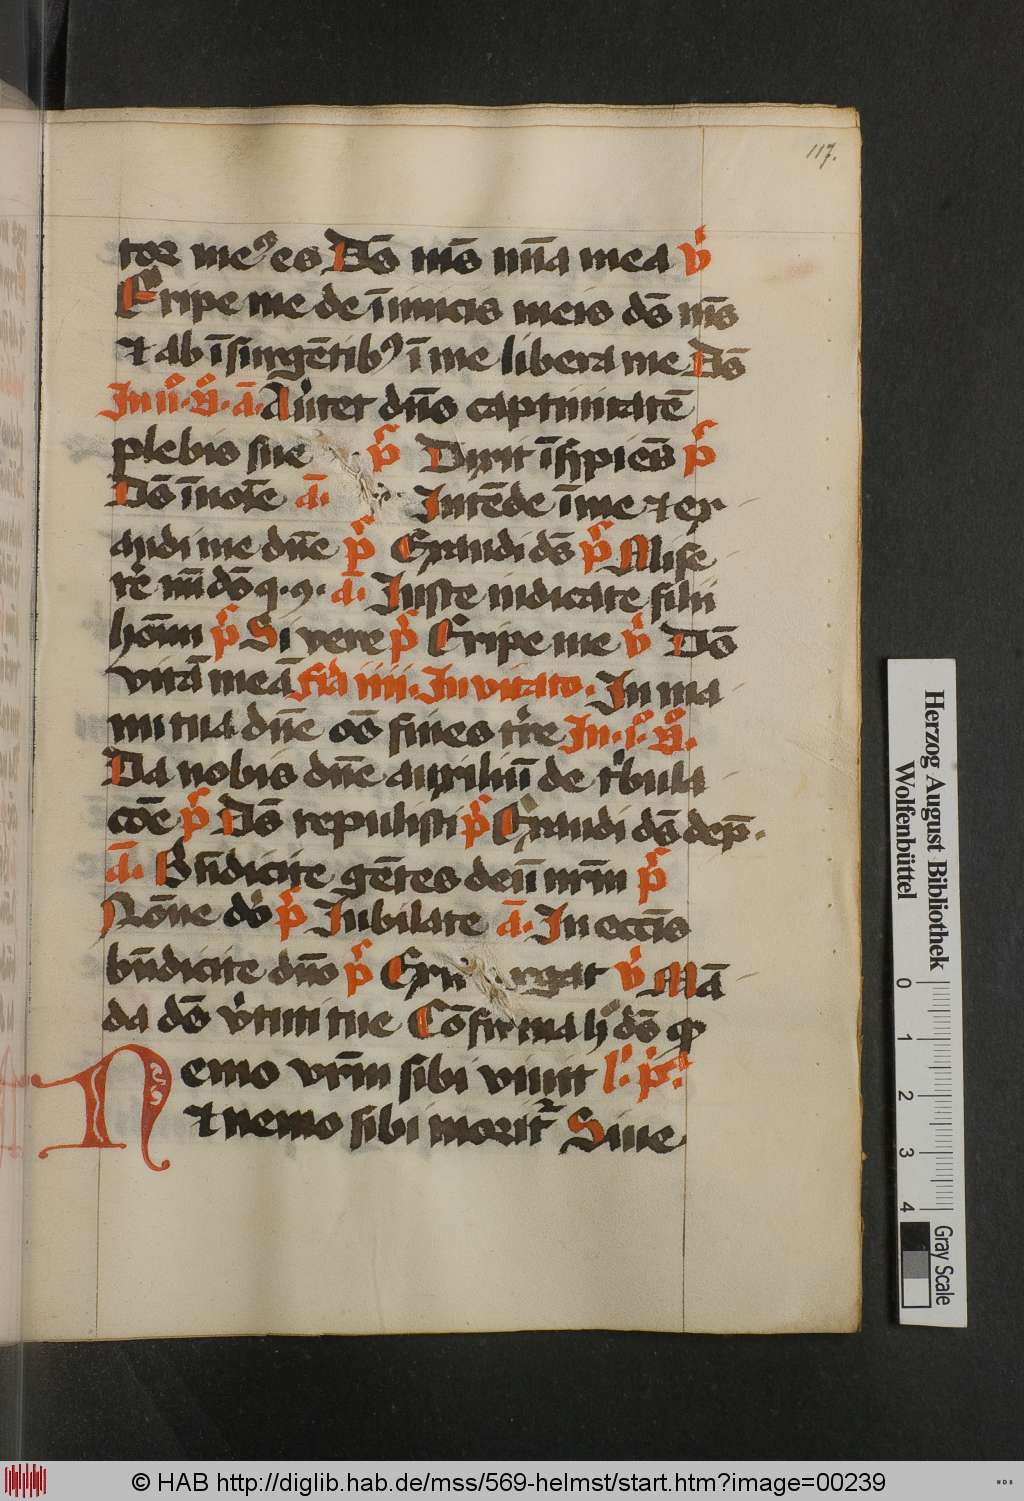 117.
tor me⁹ es Ds̄ ms̄ mīa mea v̄
Eripe me de īimicis meis ds̄ ms̄
⁊ ab īsurgētib⁹ ī me libera me Ds̄
In ii⁰. N⁰. ā. Av̄tet dn̄s captiuitatē
plebis sue p̄s Dixit īsipiēs p̄s
Ds̄ ī noīe ā. Intēde ī me ⁊ ex
audi me dn̄e p̄s Exaudi ds̄ p̄s Mise
rē mī ds̄ q. 9. ā. Iuste iudicate filii
hoīm p̄s Si vere p̄s Eripe me v̄ Ds̄
vitā meā fīa iiii. Inuitato. In ma
nu tua dn̄e os̄ fines tr̄e In. i⁰. N⁰.
Da nobis dn̄e auxiliū de t̄bula
cōe p̄s Ds̄ repulisti p̄s Exaudi ds̄ dep̄.
ā. Bn̄dicite gētes deū nr̄m p̄s
Nōne dō p̄s Iubilate ā. In eccīs
bn̄dicite dn̄o p̄s Exurgat v̄ Mā
da ds̄ v̄tuti tue Cōfirma h⁰ ds̄ qđ
Nemo vr̄m sibi viuit l̄. p̄.
⁊ nemo sibi morit̄ Siue
Herzog August Bibliothek
Wolfenbüttel
0 1 2 3 4
Gray Scale
© HAB http://diglib.hab.de/mss/569-helmst/start.htm?image=00239